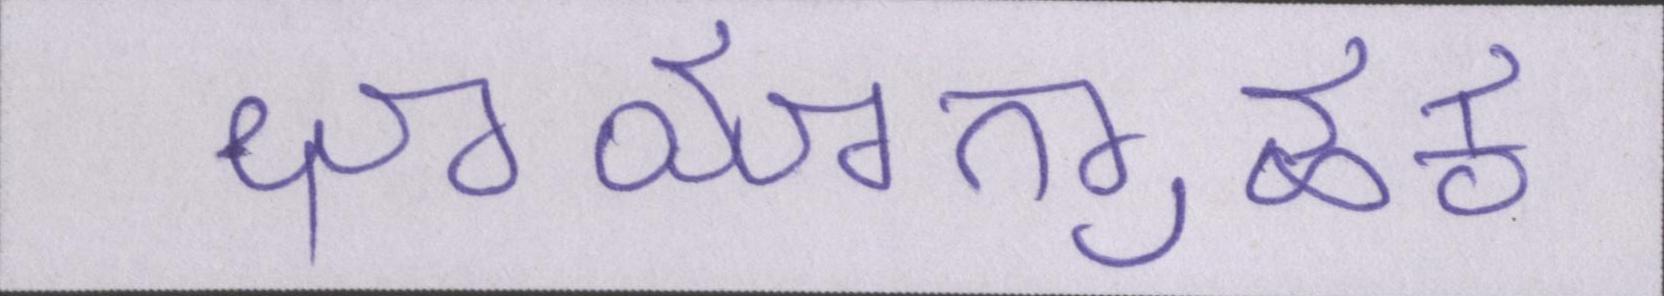 ಛಾಯಾಗ್ರಾಹಕ